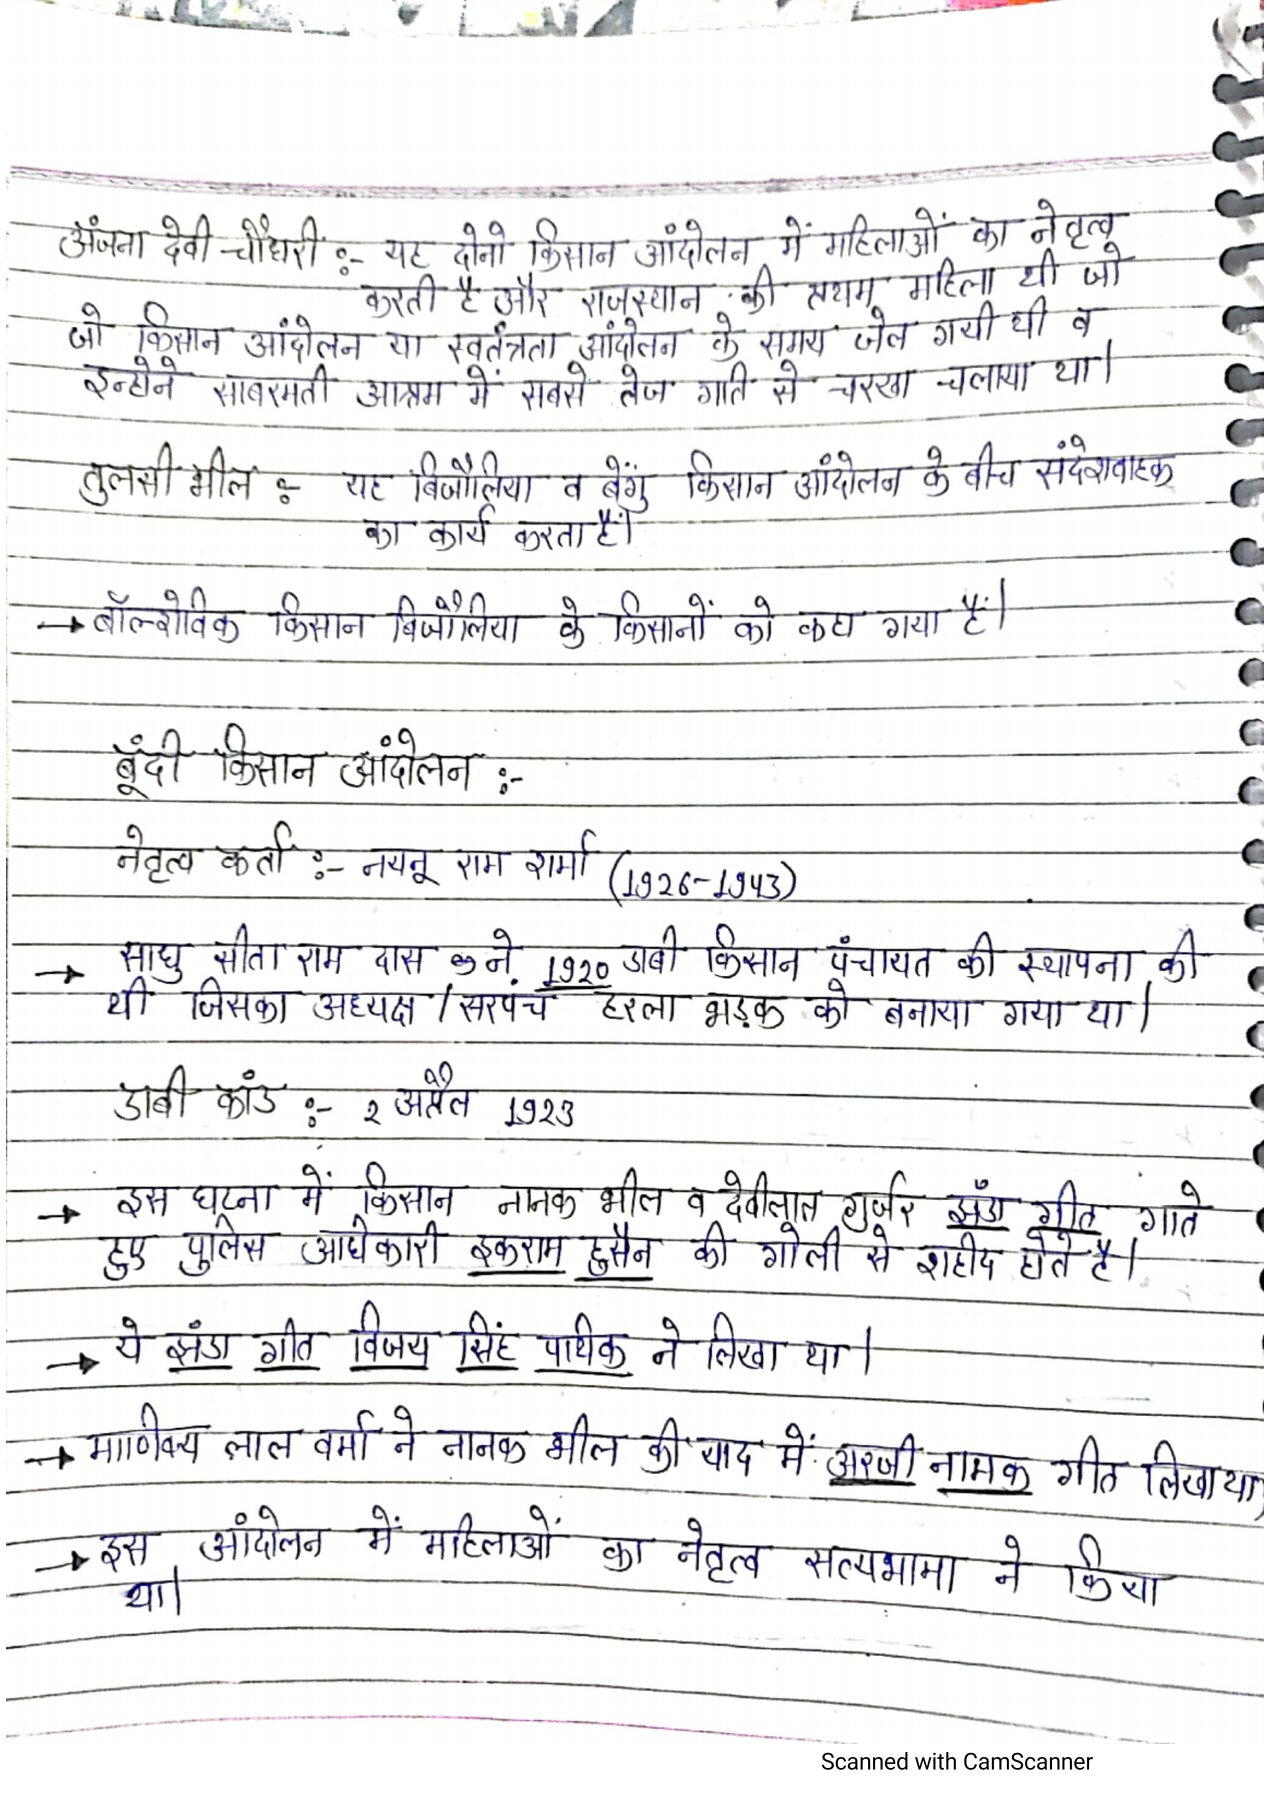 अंजना देवी चौधरी :- यह दोनो किसान आंदोलन में महिलाओं का नेतृत्व
करती है और राजस्थान की प्रथम महिला थी जो
जो किसान आंदोलन या स्वतंत्रता आंदोलन के समय जेल गयी थी व
इन्होने साबरमती आश्रम में सबसे तेज गति से चरखा चलाया था।
तुलसी भील :- यह बिजौलिया व बेंगु किसान आंदोलन के बीच संदेशवाहक
का कार्य करता है।
→ बॉल्शेविक किसान बिजौलिया के किसानों को कहा गया है।
बूंदी किसान आंदोलन :-
नेतृत्व कर्ता :- नयनू राम शर्मा (1926-1943)
→ साधु सीता राम दास ने 1920 डाबी किसान पंचायत की स्थापना की
थी जिसका अध्यक्ष / सरपंच हरला भड़क को बनाया गया था।
डाबी कांड :- 2 अप्रैल 1923
→ इस घटना में किसान नानक भील व देवीलाल गुर्जर झंडा गीत गाते
हुए पुलिस अधिकारी इकराम हुसैन की गोली से शहीद होते है।
→ ये झंडा गीत विजय सिंह पथिक ने लिखा था।
→ माणिक्य लाल वर्मा ने नानक भील की याद में अरजी नामक गीत लिखा था।
→ इस आंदोलन में महिलाओं का नेतृत्व सत्यभामा ने किया
था।
Scanned with CamScanner